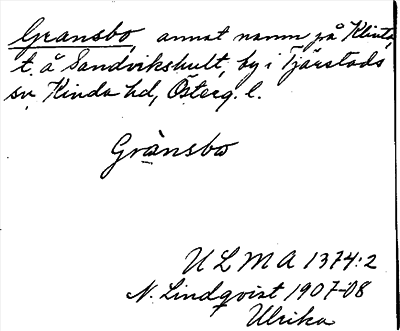 Gransbo, annat namn på Klinta,
t. å Sandvikshult, by i Tjärstads
sn, Kinda hd, Österg. l.
Grànsbo
ULMA 1374:2
N. Lindqvist 1907-08
Ulrika